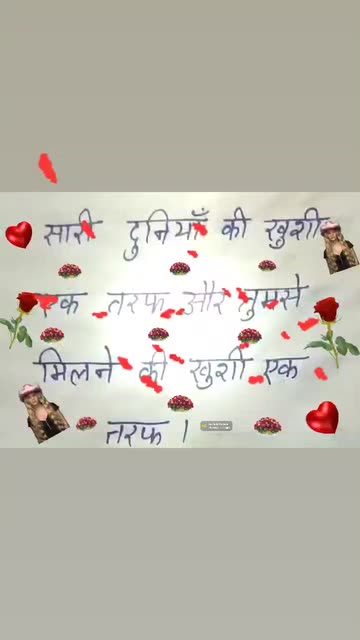 सारी दुनियाँ की खुशी
एक तरफ और तुमसे
मिलने की खुशी एक
तरफ ।